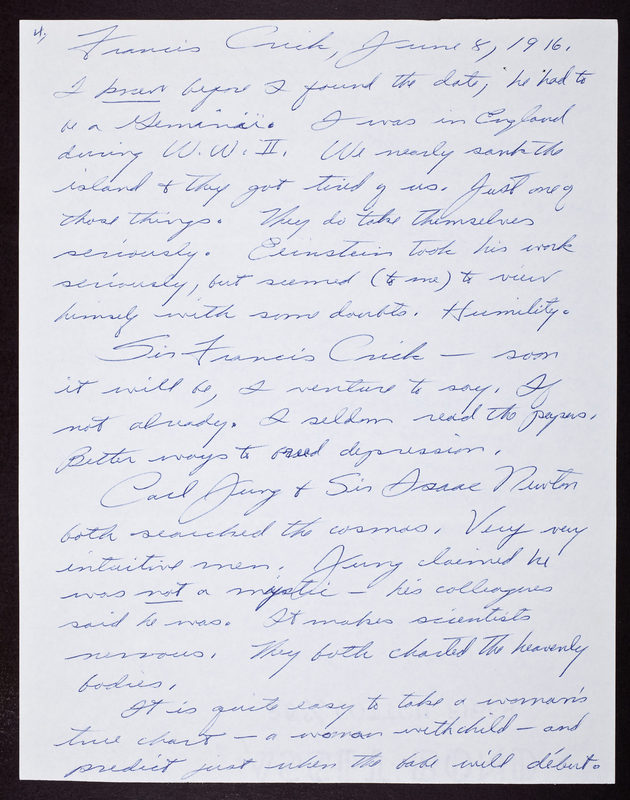 4,
Francis Crick, June 8, 1916.
I knew before I found the date; he had to
be a Geminaii. I was in England
during W.W. II. We nearly sank the
island & they got tired of us. Just one of
those things. They do take themselves
seriously. Einstein took his work
seriously, but seemed (to me) to view
himself with some doubts. Humility.
Sir Francis Crick — soon
it will be, I venture to say. If
not already. I seldom read the papers.
Better ways to depression.
Carl Jung & Sir Isaac Newton
both searched the cosmos. Very very
intuitive men. Jung claimed he
was not a mystic — his colleagues
said he was. It makes scientists
nervous. They both charted the heavenly
bodies.
It is quite easy to take a woman's
true chart — a woman with child — and
predict just when the babe will début.